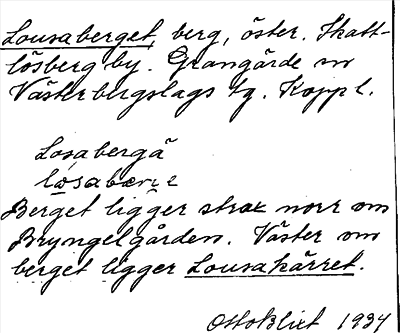 Lousaberget, berg, öster. Skatt-
lösberg by. Grangärde sn
Västerbergslags tg. Kopp l.
Losabergä
Berget ligger strax norr om
Bryngelgården. Väster om
berget ligger Lousakärret.
Otto Blixt 1934